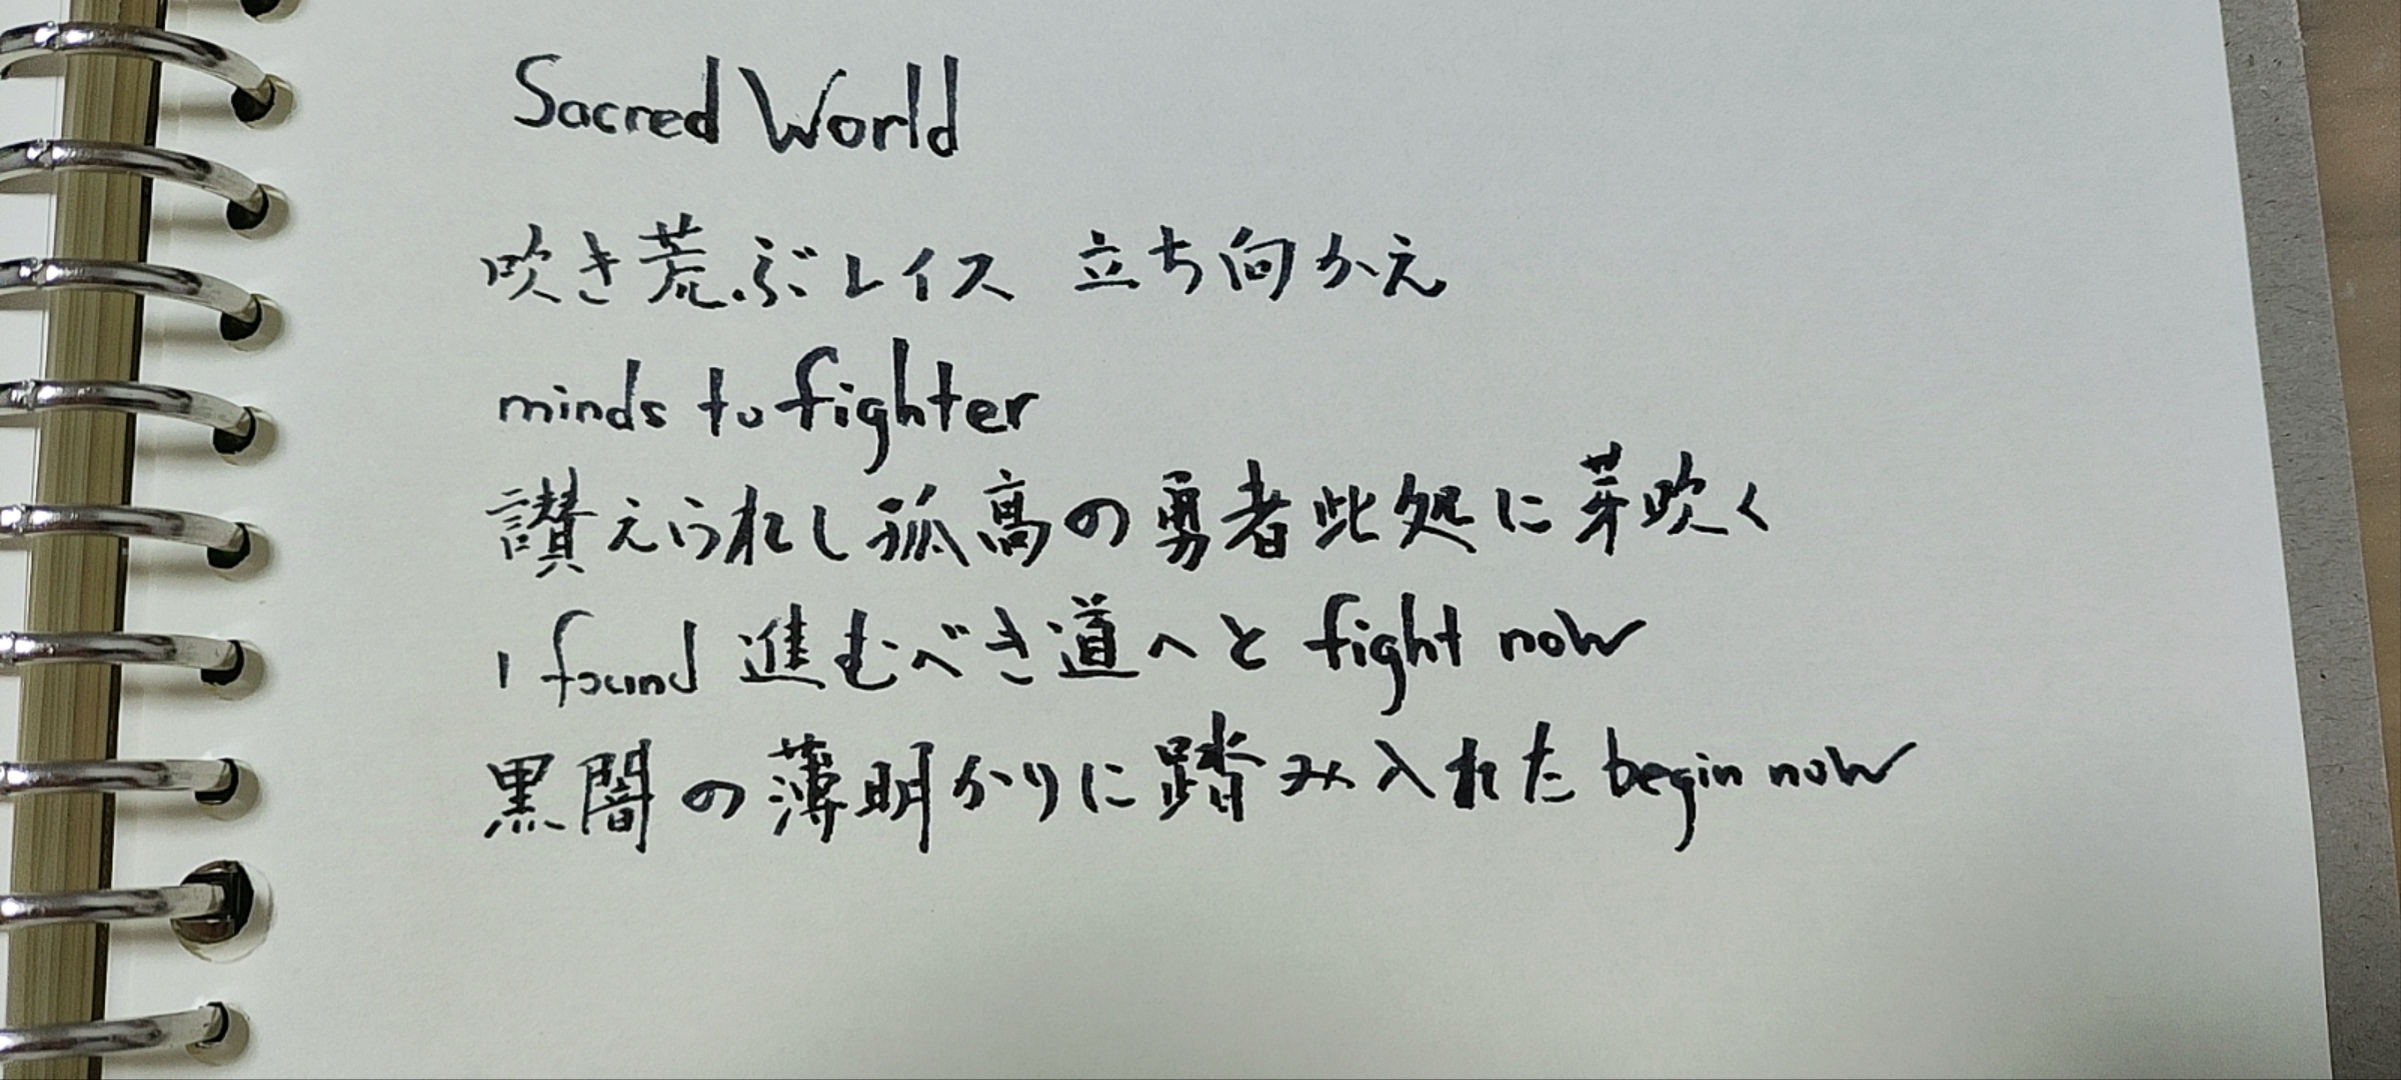 Sacred World
吹き荒ぶレイス 立ち向かえ
minds to fighter
讃えられし孤高の勇者此処に芽吹く
i found 進むべき道へと fight now
黒闇の薄明かりに踏み入れた begin now